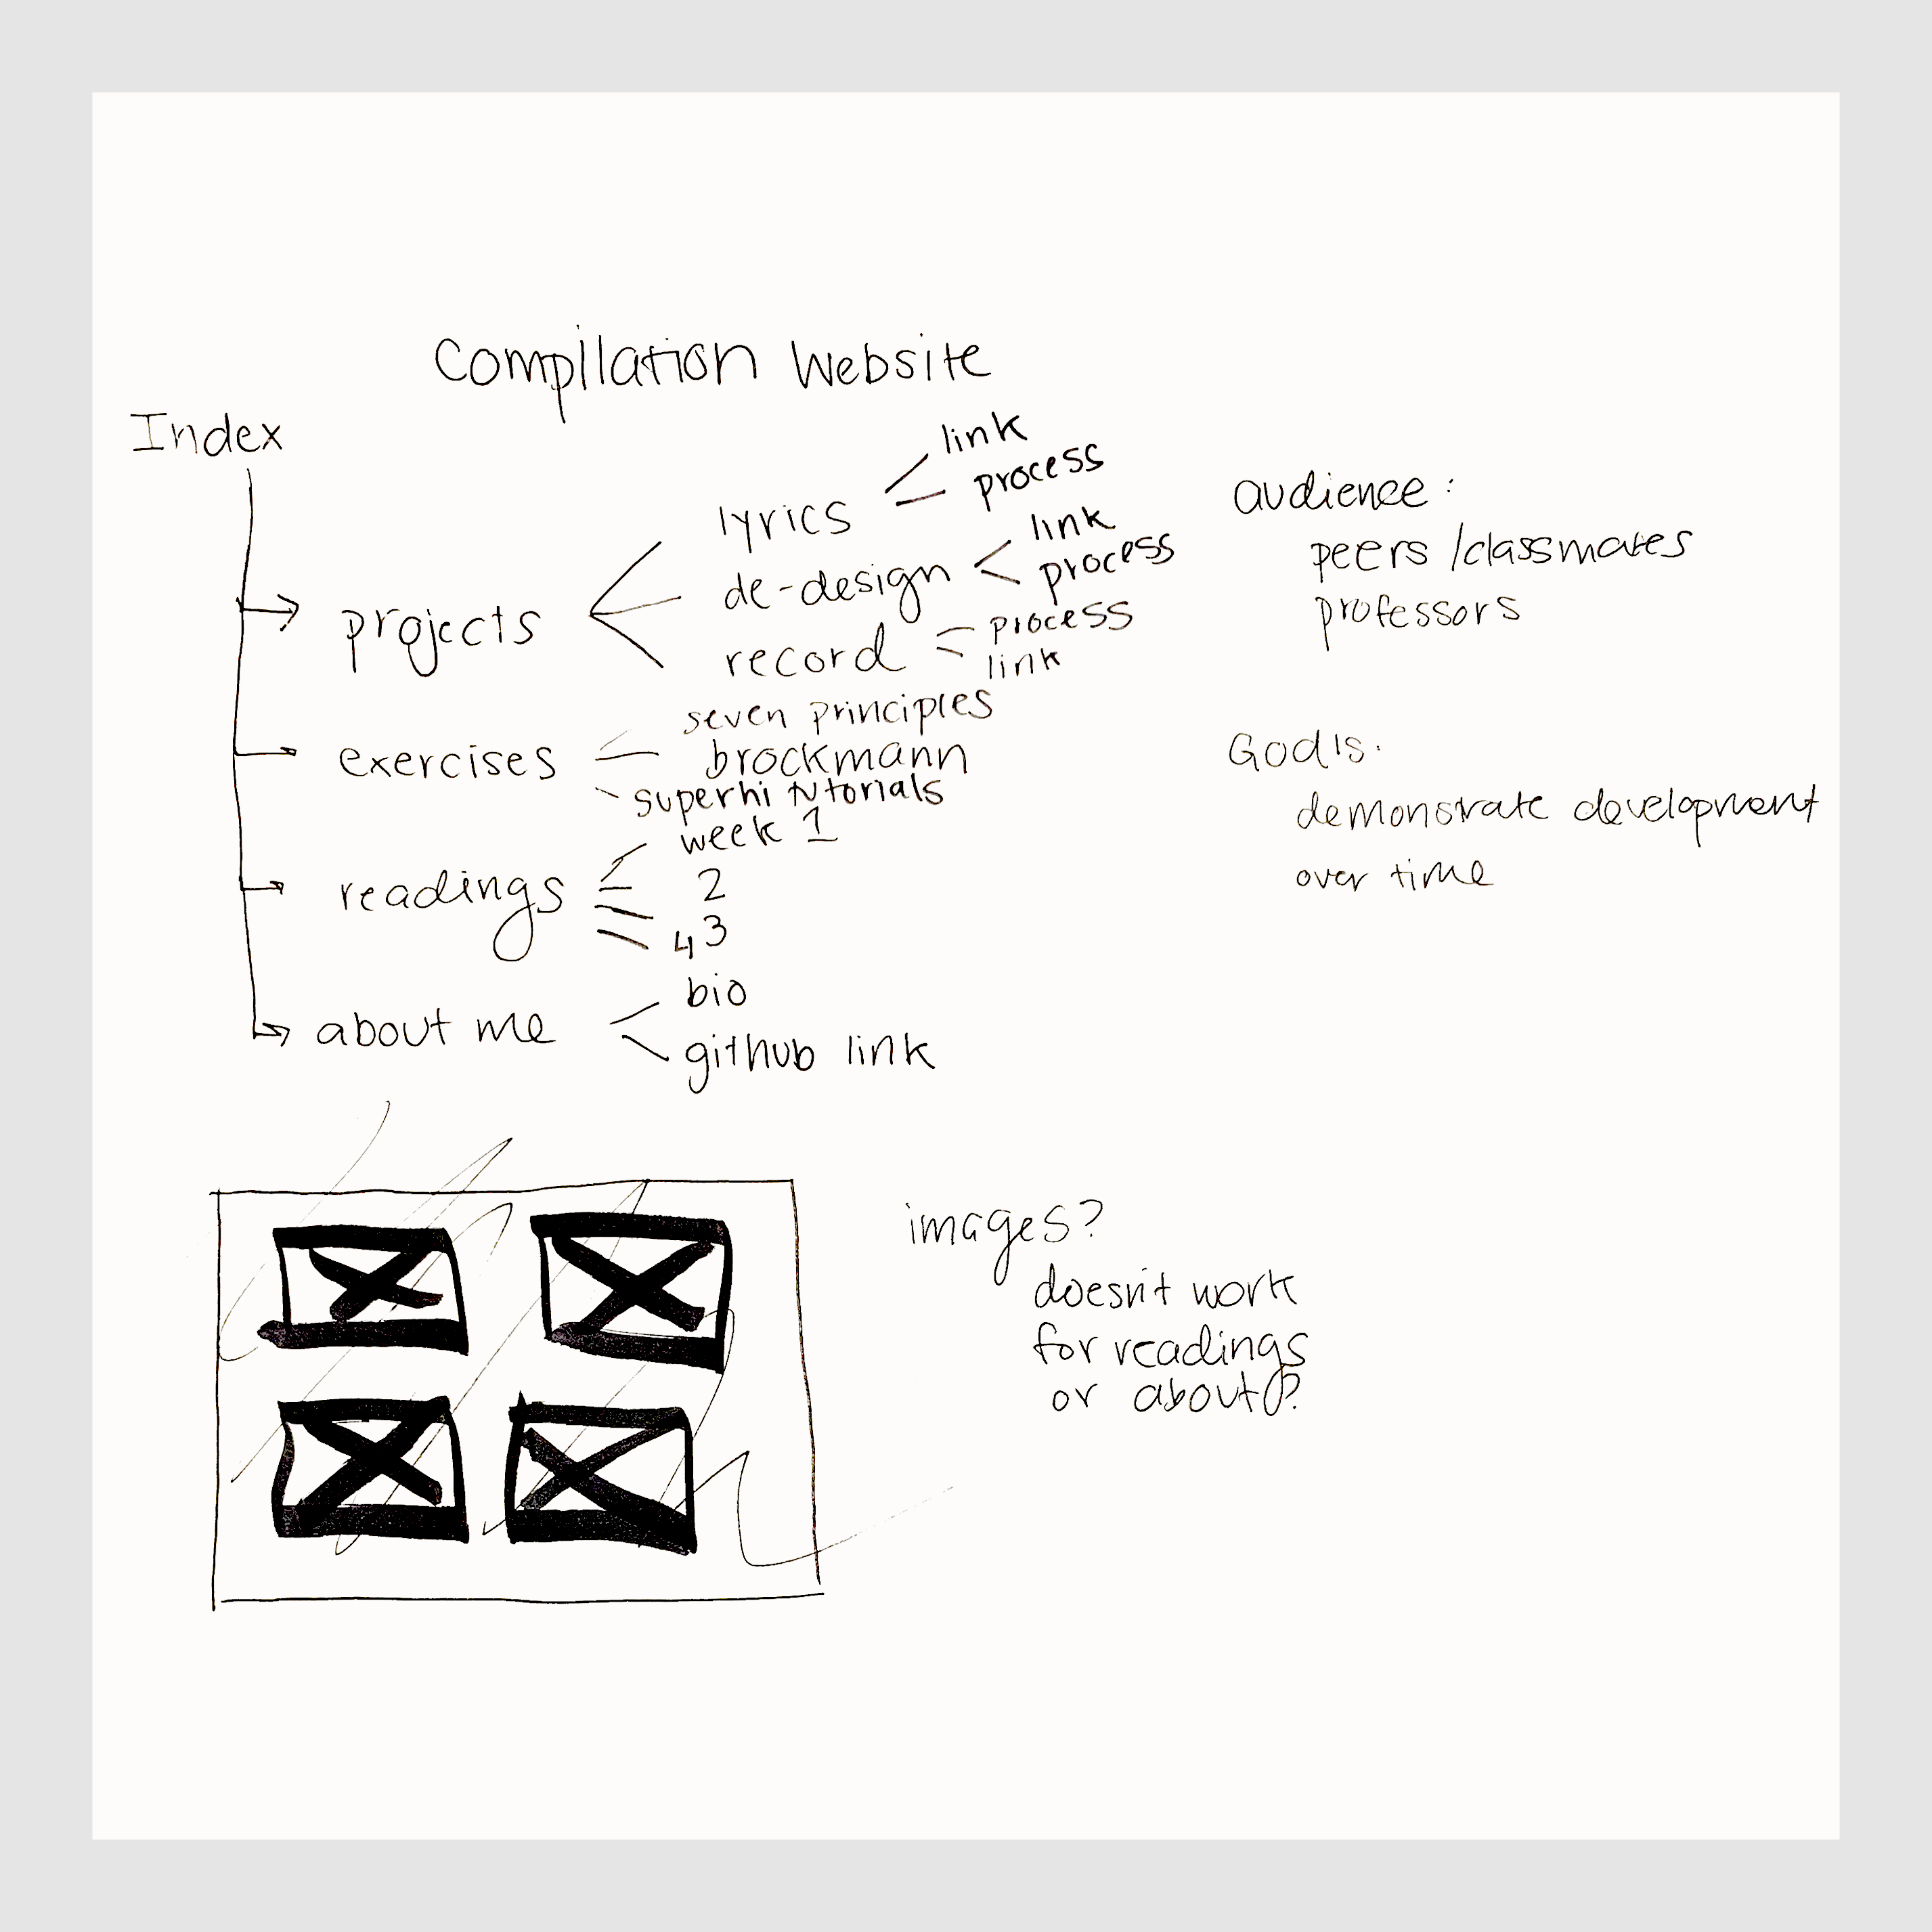 Compilation Website
Index
projects
lyrics
link
process
de-design
link
process
record
process
link
exercises
seven principles
brockmann
superhi tutorials
readings
week 1
2
3
4
about me
bio
github link
audience:
peers/classmates
professors
Goals:
demonstrate development
over time
images?
doesn't work
for readings
or about?